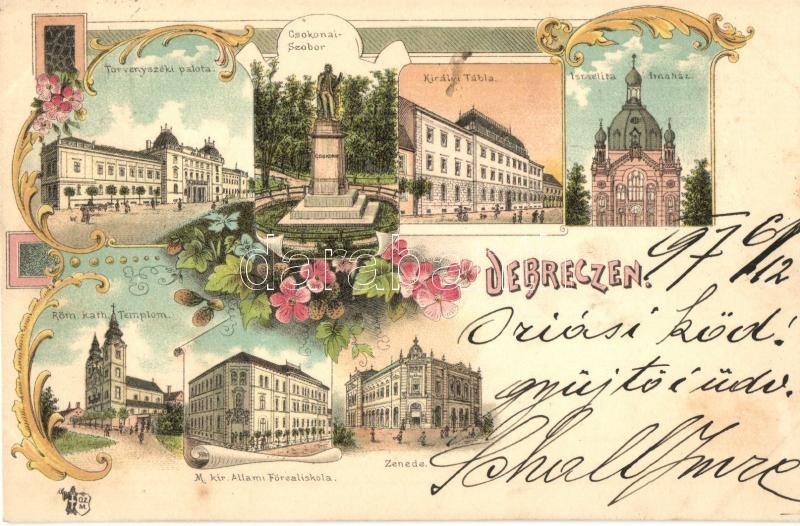 Törvényszéki palota.
Csokonai-
Szobor
Királyi Tábla.
Israelita Imaház.
CSOKONAI
darabanth
DEBRECZEN.
97 6/12
Óriási köd!
gyűjtői üdv.
Schall Imre
Róm. kath. Templom.
M. kir. Állami Főrealiskola.
Zenede.